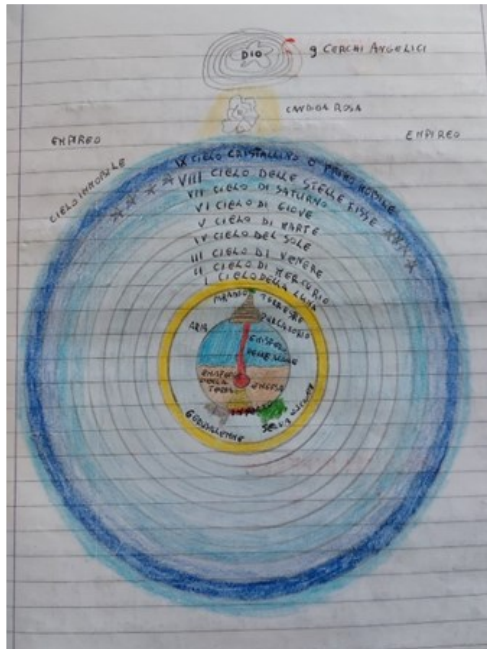 DIO
9 CERCHI ANGELICI
CANDIDA ROSA
EMPIREO
EMPIREO
CIELO IMMOBILE
IX CIELO CRISTALLINO O PRIMO MOBILE
VIII CIELO DELLE STELLE FISSE
VII CIELO DI SATURNO
VI CIELO DI GIOVE
V CIELO DI MARTE
IV CIELO DEL SOLE
III CIELO DI VENERE
II CIELO DI MERCURIO
I CIELO DELLA LUNA
TERRESTRE
PURGATORIO
ARIA
EMISFERO
DELLA
TERRA
GERUSALEMME
SELVA OSCURA